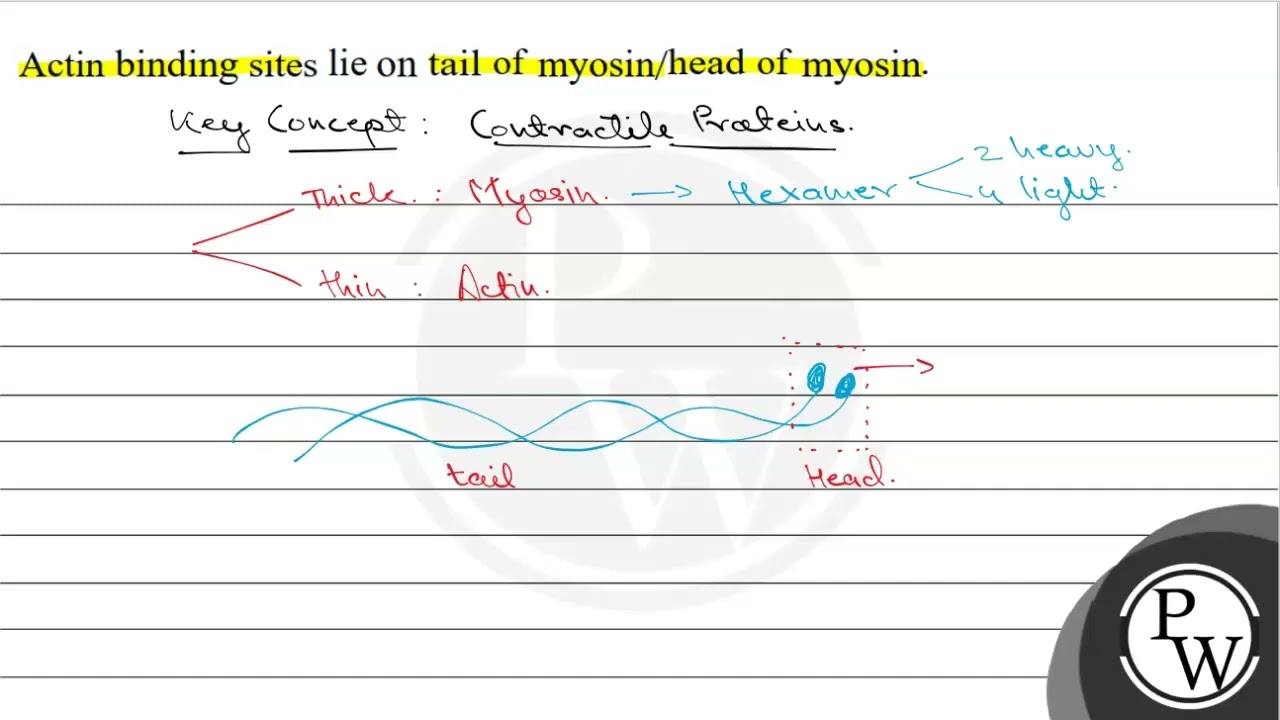 Actin binding sites lie on tail of myosin/head of myosin.
Key Concept: Contractile Proteins.
2 heavy.
Thick. : Myosin. → Hexamer
4 light.
thin : Actin.
tail
Head.
PW
PW